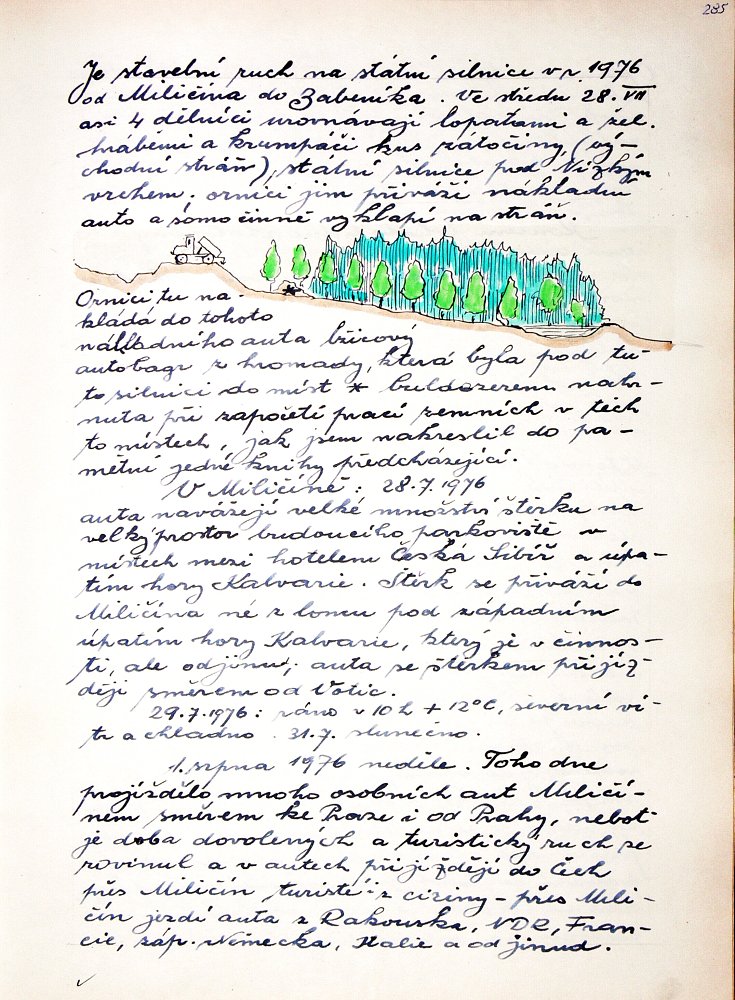 285
Je stavební ruch na státní silnice v r. 1976
od Miličína do Zabeníka. Ve středu 28. VII
asi 4 dělníci urovnávají lopatami a žel.
hráběmi a krumpáči kus zátočiny, (vý-
chodní stráň), státní silnice pod Nízkým
vrchem; ornici jim přiváží nákladní
auto a samočinně vyklápí na stráň.
Ornici tu na-
kládá do tohoto
nákladního auta lžícový
autobagr z hromady, která byla pod tu-
to silnici do míst * buldozerem nahr-
nuta při započetí prací zemních v těch
to místech, jak jsem nakreslil do pa-
mětní jedné knihy předcházející.
V Miličíně: 28.7.1976
auta navážejí velké množství štěrku na
velký prostor budoucího parkoviště v
místech mezi hotelem Česká Sibiř a úpa-
tím hory Kalvarie. Štěrk se přiváží do
Miličína né z lomu pod západním
úpatím hory Kalvarie, který je v činnos-
ti, ale odjinud; auta se štěrkem přijíž-
dějí směrem od Votic.
29.7.1976: ráno v 10 h + 12°C, severní ví-
tr a chladno. 31.7. slunečno.
1. srpna 1976 neděle. Toho dne
projíždělo mnoho osobních aut Miličí-
nem směrem ke Praze i od Prahy, neboť
je doba dovolených a turistický ruch se
rozvinul a v autech přijíždějí do Čech
přes Miličín turisté i z ciziny - přes Mili-
čín jezdí auta z Rakouska, NDR, Fran-
cie, záp. Německa, Italie a od jinud.